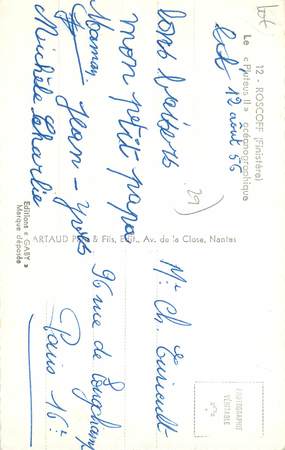 12 - ROSCOFF (Finistère)
Le « Pluteus II » océanographique
12 août 56
bons baisers
mon petit papa
Maman, Jean-Yves
Michèle Charlie
Editions « GABY »
Marque déposée
ARTAUD Père & Fils, Édit., Av. de la Close, Nantes
29)
Mr Ch.
96 rue de Longchamp
Paris 16e
PHOTOGRAPHIE
VÉRITABLE